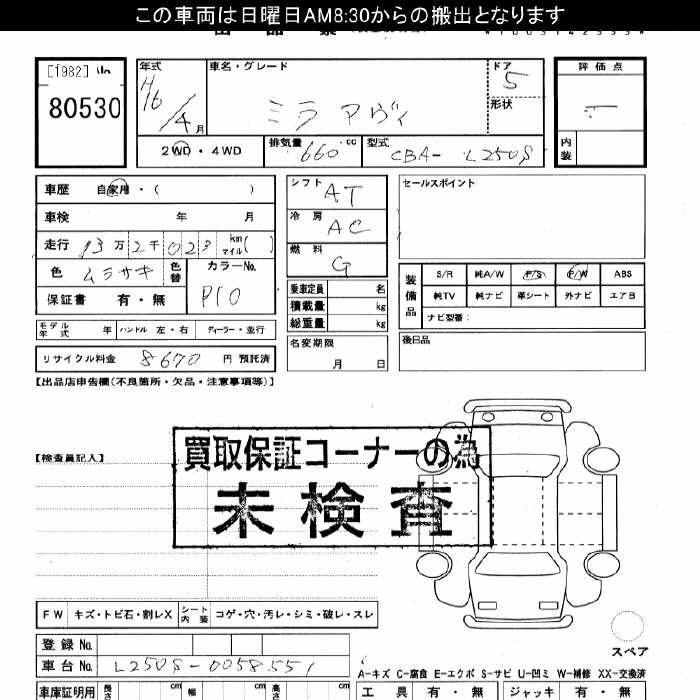 この車両は日曜日AM8:30からの搬出となります
[1982]
80530
年式
H16/4月
車名・グレード
ミラ アヴィ
ドア
5
形状
評価点
内装
2WD・4WD
排気量
660 cc
型式
CBA-L250S
車歴 自家用・( )
車検 年 月
走行 13万2千023 km マイル( )
色 ムラサキ 色替
カラーNo.
P10
保証書 有・無
シフト
AT
冷房
AC
燃料
G
乗車定員 名
積載量 kg
総重量 kg
名変期限
月 日
セールスポイント
装備品
S/R 純A/W P/S P/W ABS
純TV 純ナビ 革シート 外ナビ エアB
ナビ型番:
後日品
モデル年式 年 ハンドル 左・右 ディーラー・並行
リサイクル料金 8670 円 預託済
【出品店申告欄(不良箇所・欠品・注意事項等)】
【検査員記入】
買取保証コーナーの為
未検査
FW キズ・トビ石・割レX シート内装 コゲ・穴・汚レ・シミ・破レ・スレ
登録No.
車台No. L250S-0058551
スペア
A-キズ C-腐食 E-エクボ S-サビ U-凹ミ W-補修 XX-交換済
車庫証明用 長さ cm 幅 cm 高さ cm
工具 有・無 ジャッキ 有・無